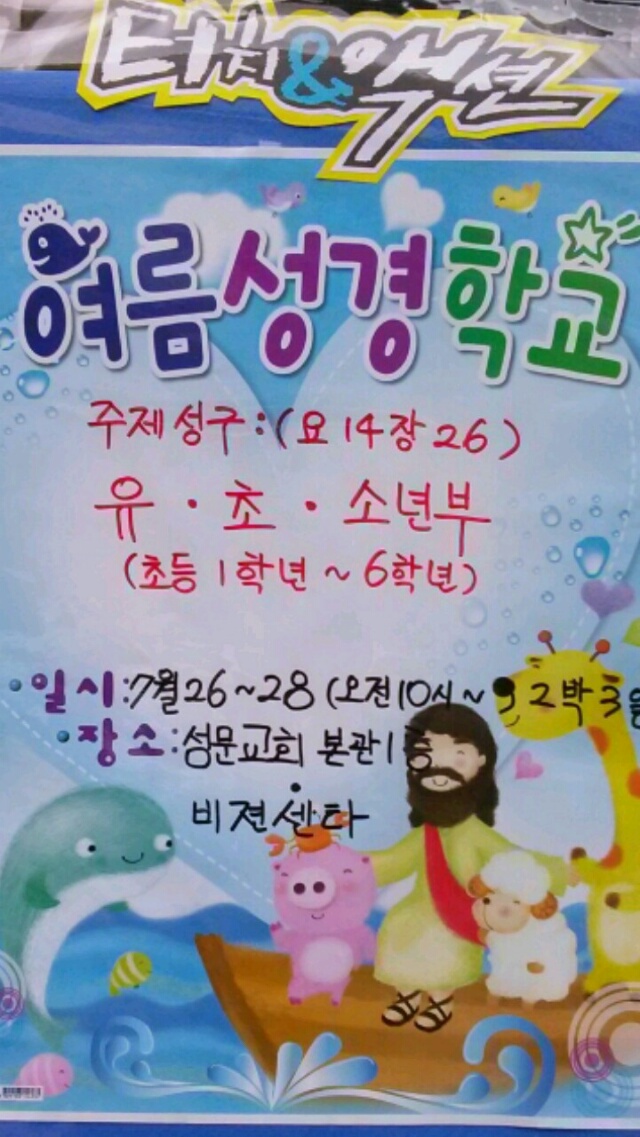 터치&액션
여름성경학교
주제성구:(요 14장 26)
유·초·소년부
(초등 1학년 ~ 6학년)
•일시:7월 26~28 (오전10시~ 2박 3일
•장소:성문교회 본관 1층
비젼센타